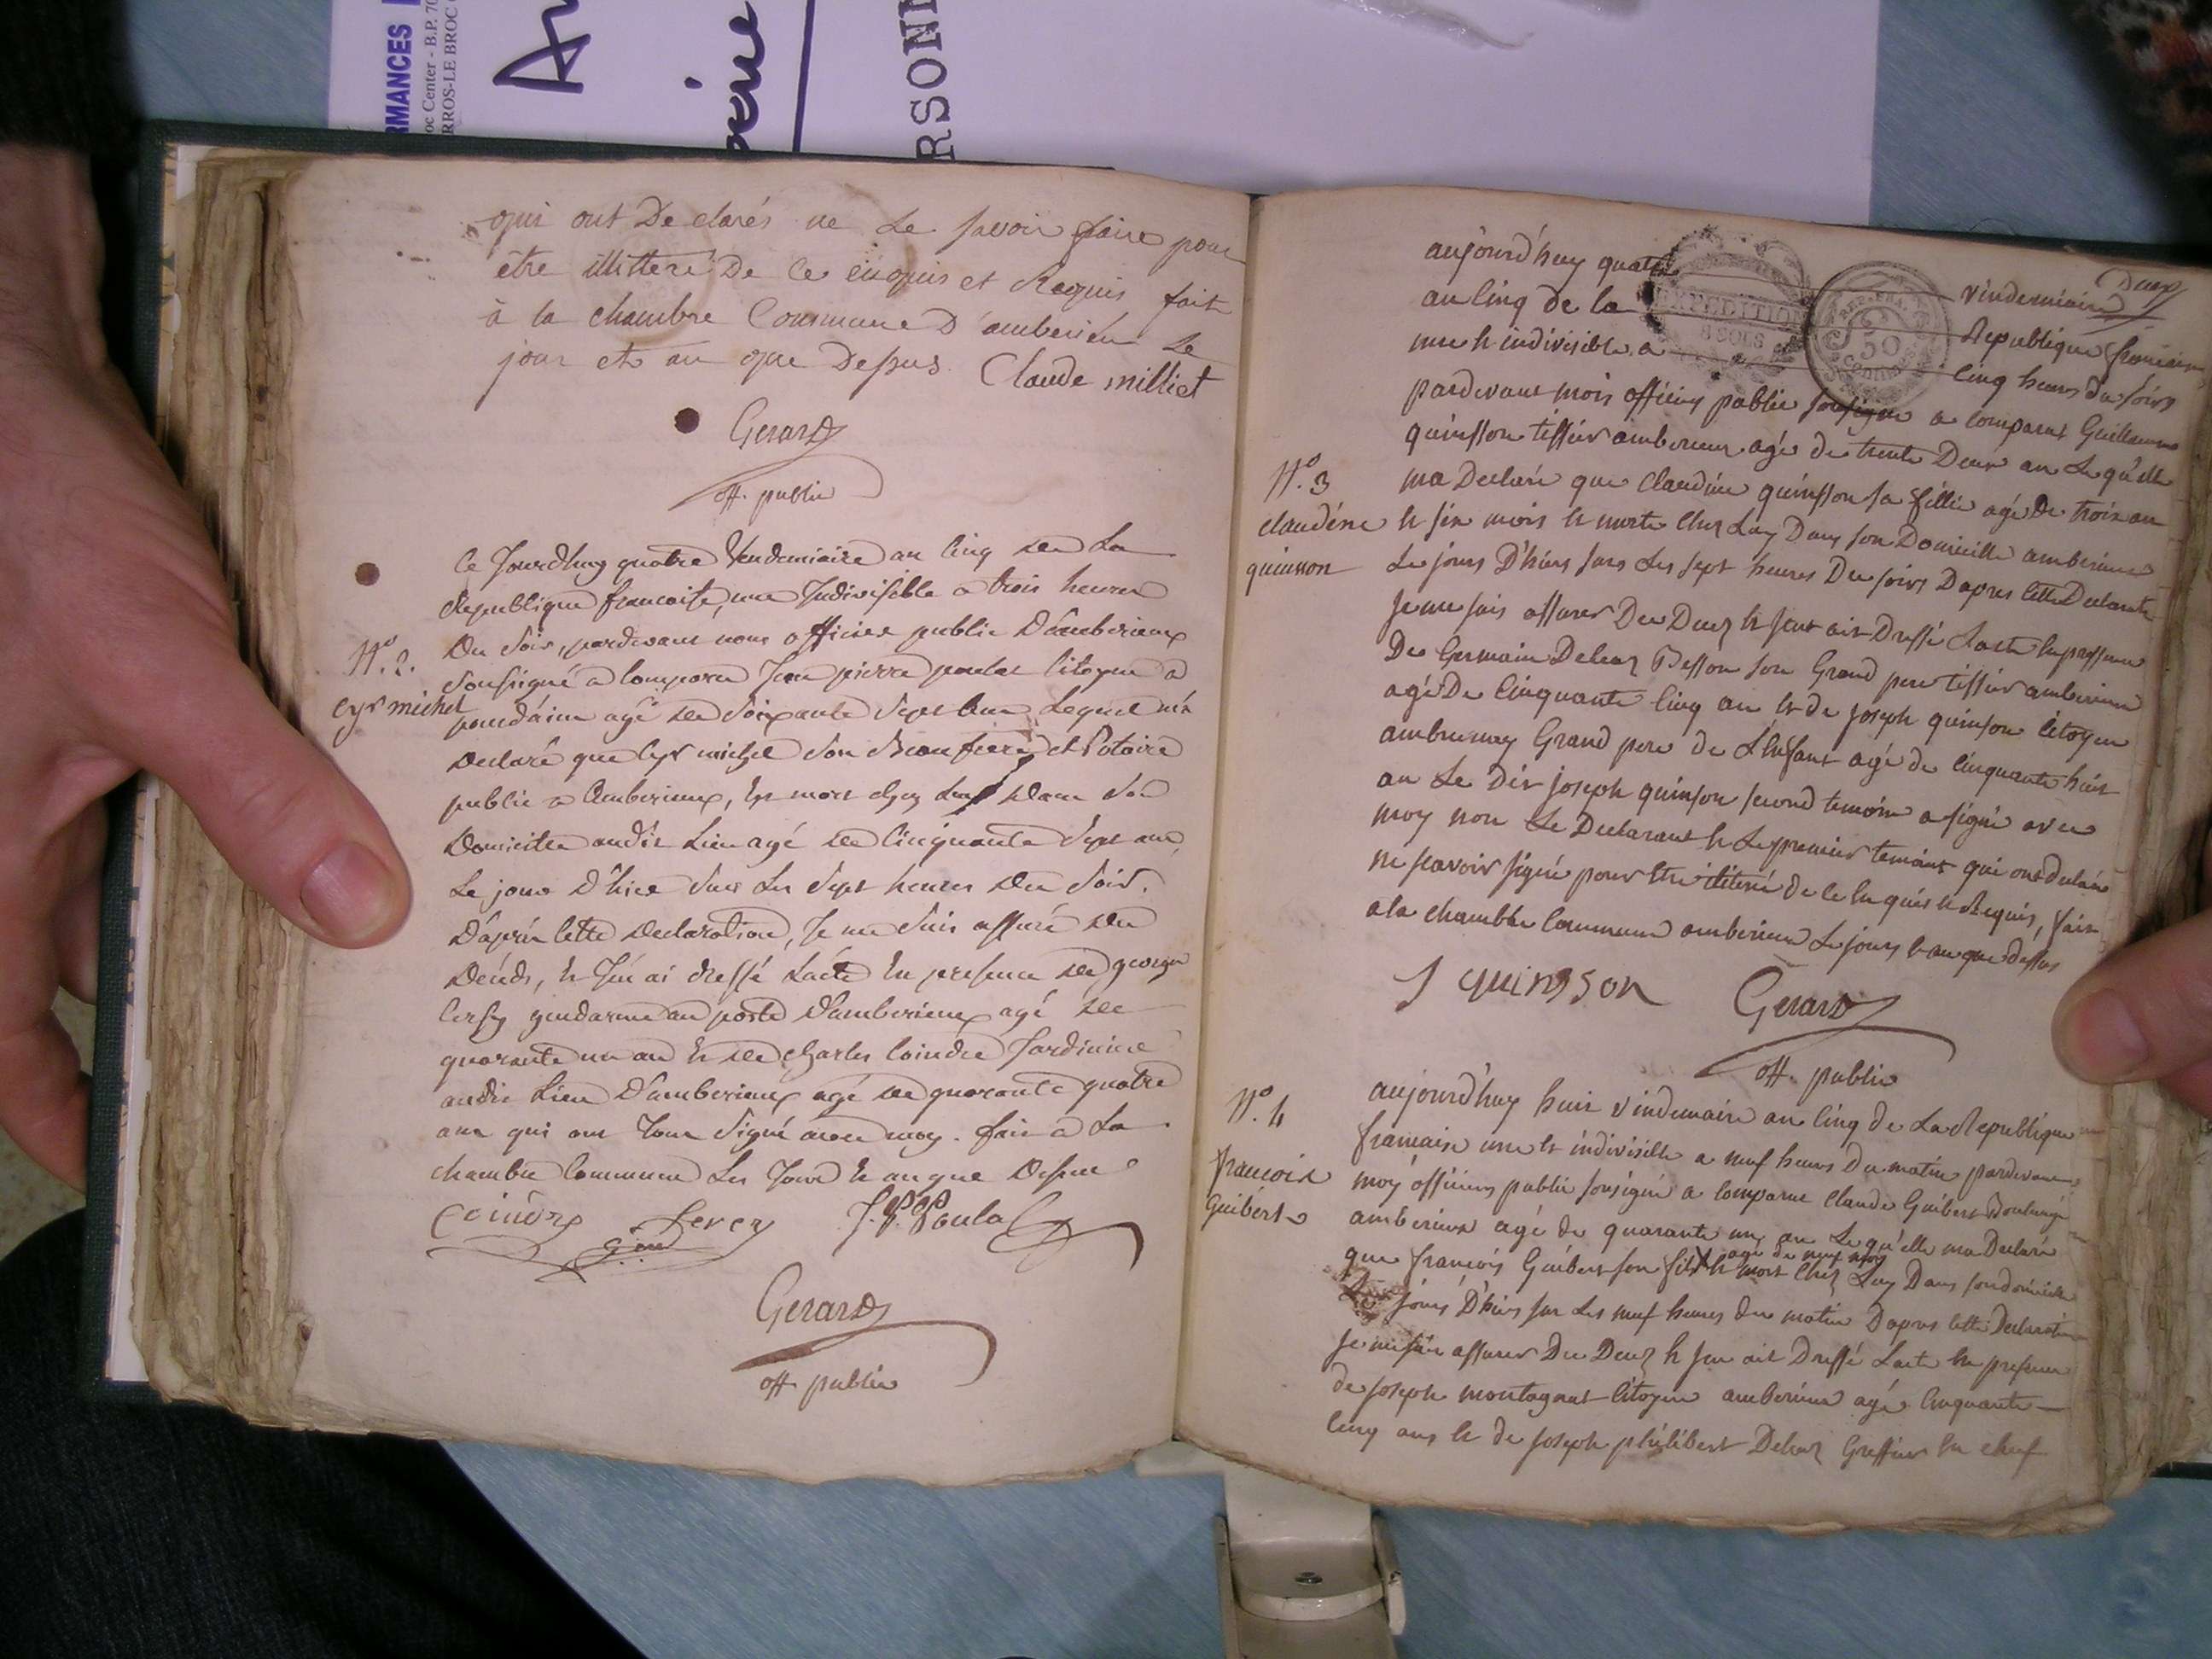 RMANCES
oc Center - B.P. 70
RROS-LE BROC
RSONN
qui ont De clarés ne Le Savoir faire pour
être illitteré De Ce enquis et Requis fait
à la chambre Commune D'amberieu Le
jour et an que Dessus Claude milliet
Gerard
off. public
Ce Jourdhuy quatre Vendemiaire an Cinq de La
Republique francoise, une Indivisible a trois heures
Du Soir, pardevant nous officier public D'amberieux
N.º 2.
Soussigné a Comparu Jean pierre poulat Citoyen a
cyr michel
agé de Soixante Sept ans Lequel m'a
Declaré que Cyr michel Son Beaufrere et Notaire
public a Amberieux, Est mort chez Luy Dans Son
Domicile audit Lieu agé de Cinquante Sept ans,
Le jour D'hier Sur Les Sept heures Du Soir.
D'après Cette Declaration, Je me Suis assuré du
Décéds, Et J'en ai dressé L'acte En presence de george
gendarme au poste D'amberieux agé de
quarante un an Et de charles Coindre Jardinier
audit Lieu D'amberieux agé de quarante quatre
ans qui ont Tous Signé avec moy. fait a La
chambre Commune Les Jour Et an que Dessus
Coindre J. P. Poulat
Gerard
off. public
Deux
aujourd'huy quatre vindemiaire
EXPEDITION
8 SOLS
REP. FRA.
50
Centimes
an Cinq de la Republique francaise
une et indivisible a Cinq heures du Soirs
pardevant mois officiers public Sousigne a comparut Guillaume
quinsson tissier amberieux agé de trente Deux an Le qu'elle
N.º 3
ma Declaré que Claudine quinsson sa fillie agé De trois an
claudéne
et six mois et morte chez Luy Dans son Domicille amberieux
quinson
Le jours D'hiers surs Les sept heures Du soirs Dapres cette Declarate
Je me suis assurer Du Deuz et Jent ait Dressé L'acte En pressence
De Germain Deleaz Besson son Grand pere tissier amberieux
agé De Cinquante Cinq an Et de joseph quinson Citoyen
Grand pere de L'Enfant agé de Cinquante huit
an Le Dit joseph quinson second temoin a signé avec
moy non Le Declarant et Le premier temoins qui ont declaré
ne scavoir signé pour être iliteré de ce En quis et Requis, fait
a la chambre Commune amberieux Le jours et an que dessus
J quinsson Gerard
off. public
aujourd'huy huit vindemaire an cinq de La Republique
N.º 4
francaise une et indivisible a neuf heures Du matin pardevant
francois
moy officiers public sousigné a Comparut Claude Guibert Boulangé
Guibert
amberieux agé de quarante un an Le qu'elle ma Declaré
agé de neuf mois
que francois Guibert son fils X et mort chez Luy Dans son domicille
Le jours D'hiers sur Les neuf heures du matin Dapres cette Declaration
Je me suis assurer Du Deuz et Jen ait Dressé Lacte En presence
de joseph montagnat Citoyen amberieux agé Cinquante
cinq ans et de joseph philibert Deleaz Greffier En chef